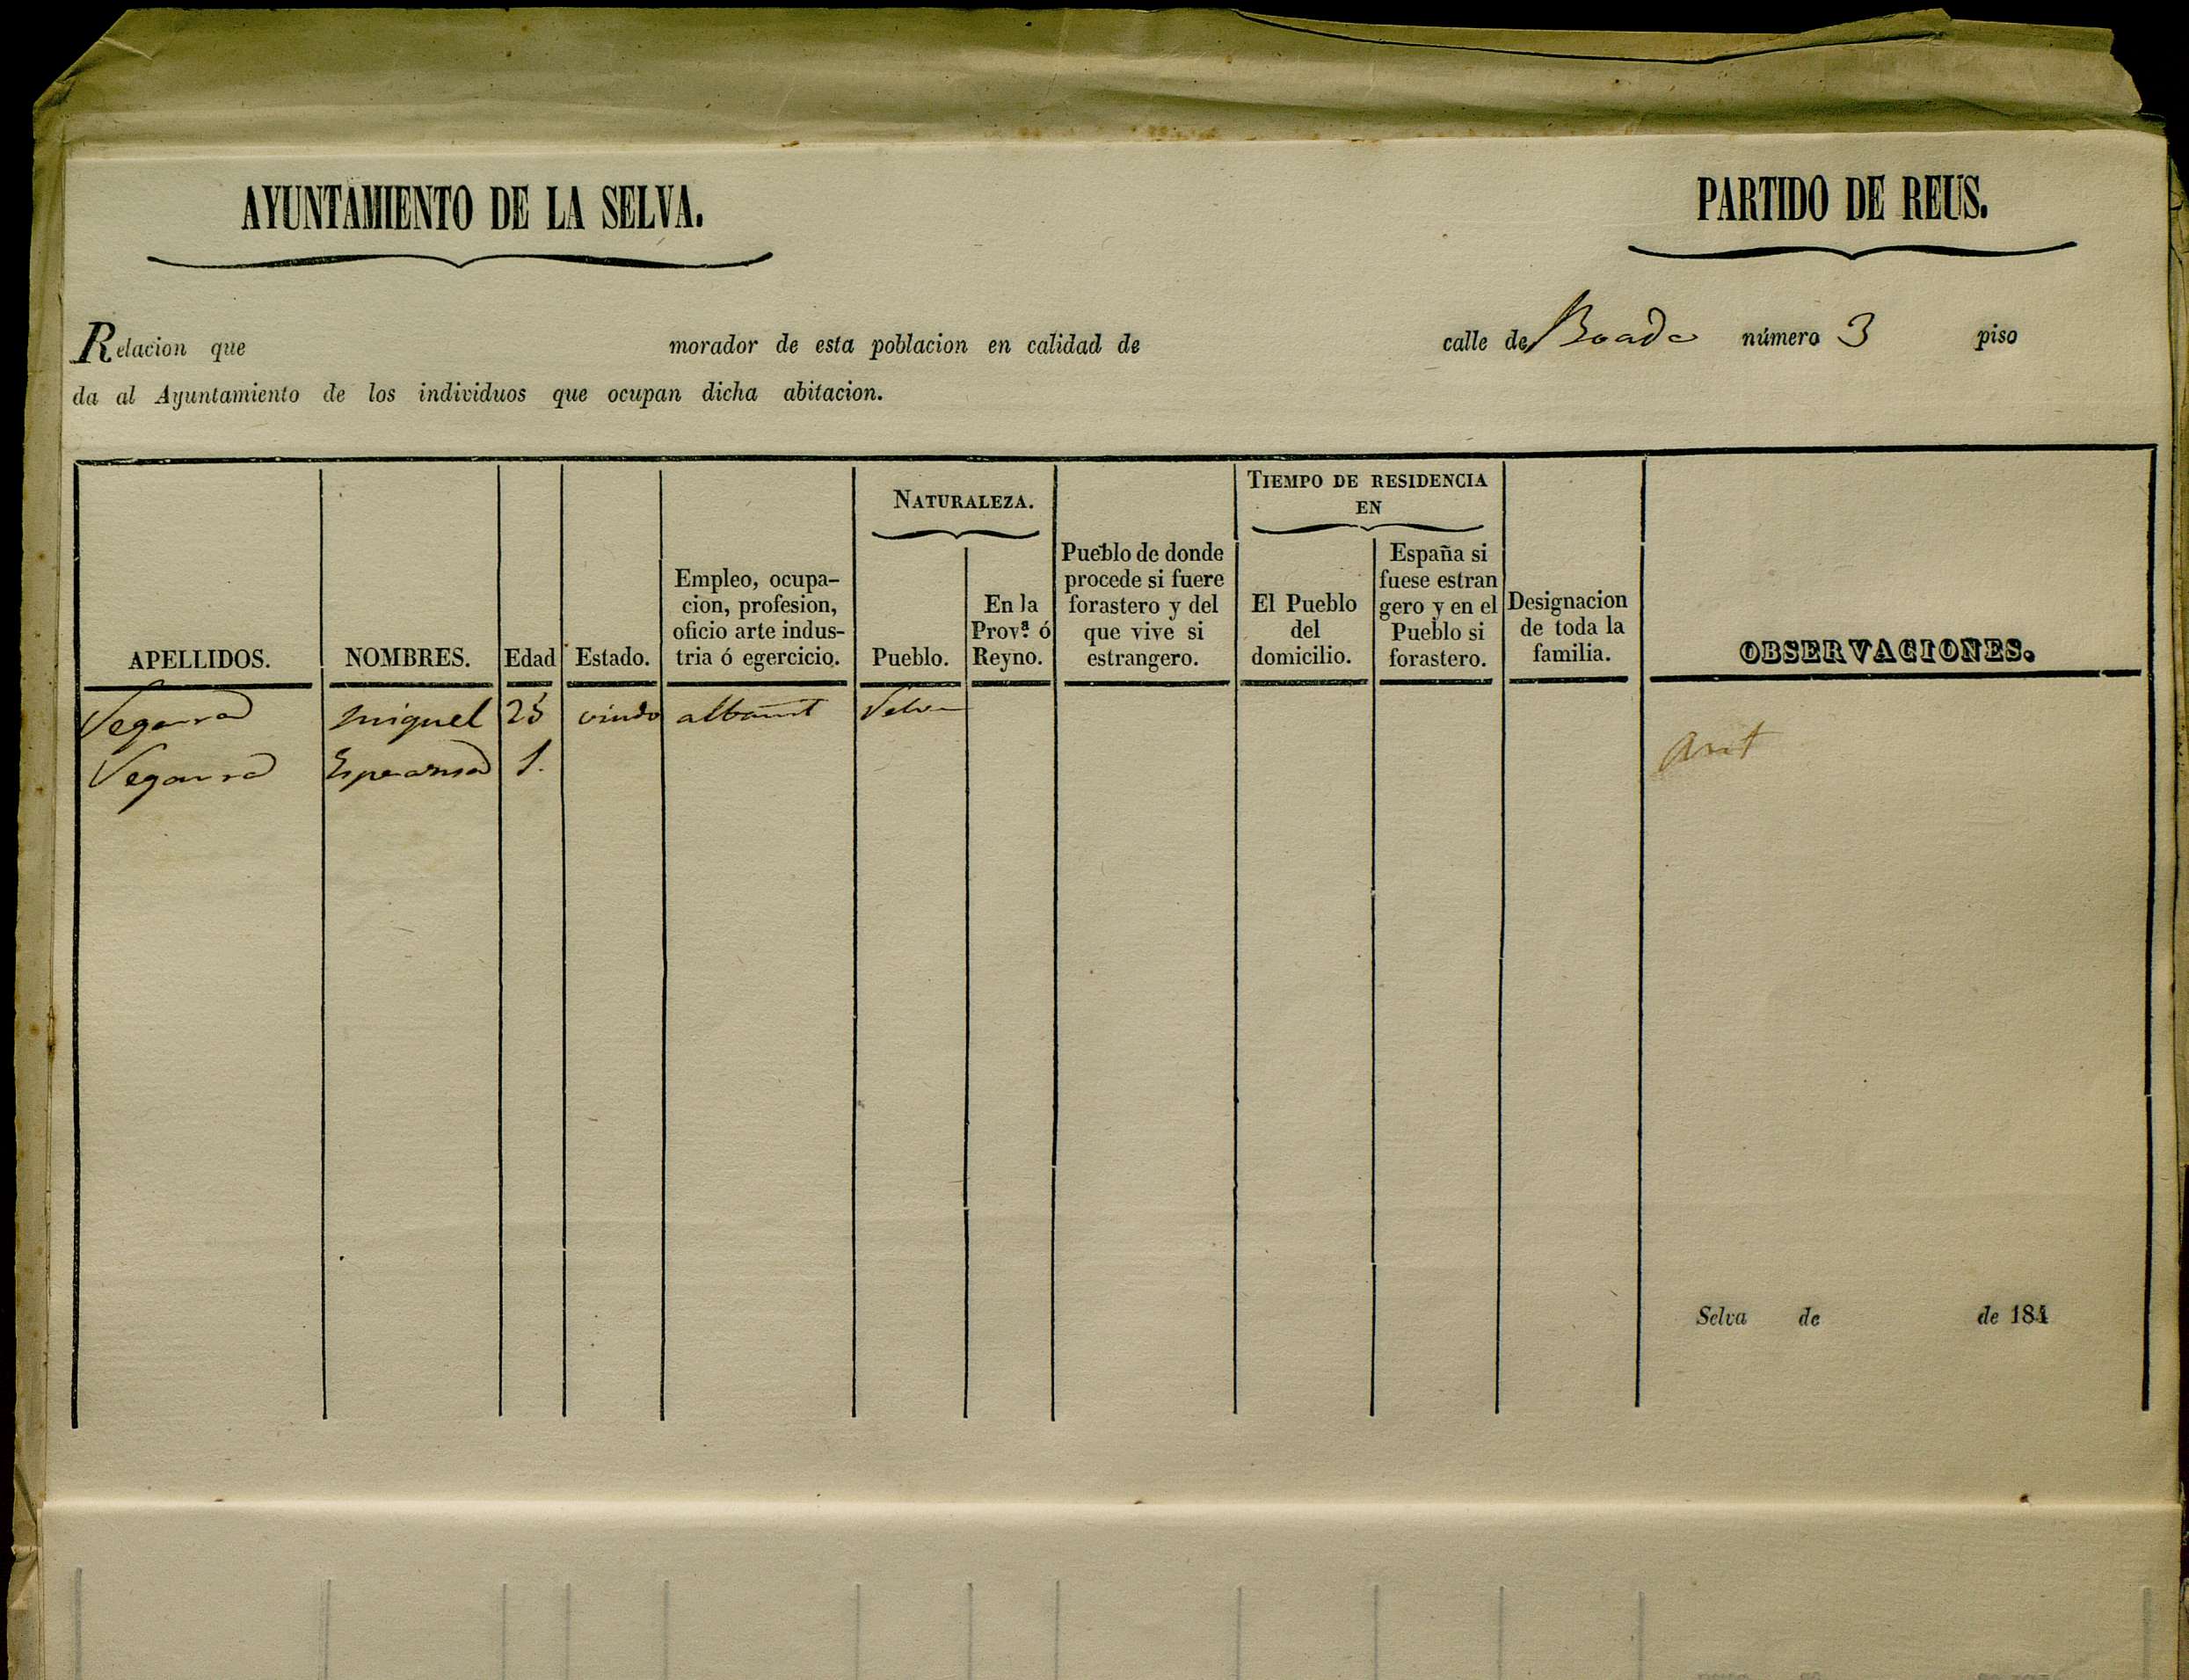 AYUNTAMIENTO DE LA SELVA.
PARTIDO DE REUS.
Relacion que morador de esta poblacion en calidad de calle de Boada número 3 piso
da al Ayuntamiento de los individuos que ocupan dicha abitacion.
APELLIDOS.
NOMBRES.
Edad
Estado.
Empleo, ocupa-
cion, profesion,
oficio arte indus-
tria ó egercicio.
NATURALEZA.
Pueblo.
En la
Prov.ª ó
Reyno.
Pueblo de donde
procede si fuere
forastero y del
que vive si
estrangero.
TIEMPO DE RESIDENCIA
EN
El Pueblo
del
domicilio.
España si
fuese estran
gero y en el
Pueblo si
forastero.
Designacion
de toda la
familia.
OBSERVACIONES.
miguel 25 viudo Selva
1.
Selva de de 184